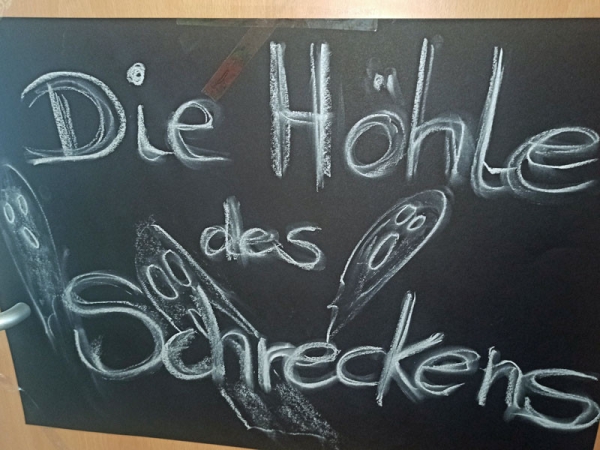 Die Höhle
des
Schreckens